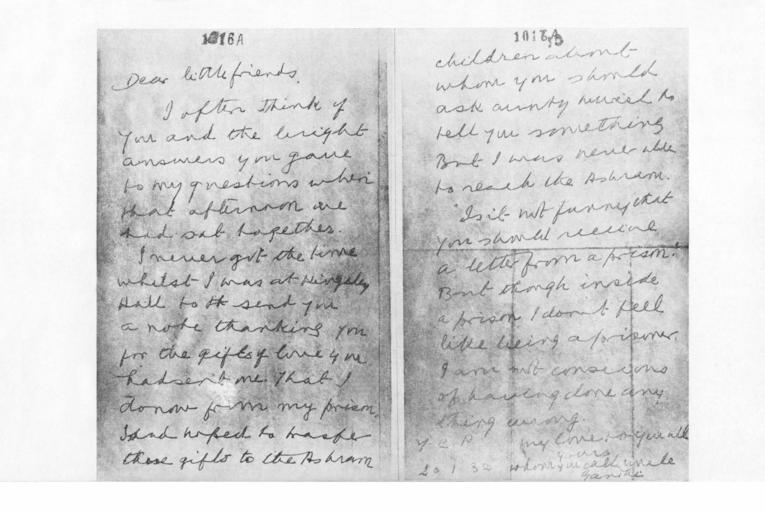 1016A
Dear little friends,
I often think of
you and the bright
answers you gave
to my questions when
that afternoon we
had sat together.
I never got the time
whilst I was at Kingsley
Hall to send you
a note thanking you
for the gifts of love you
had sent me. That I
do now from my prison.
I had hoped to transfer
these gifts to the Ashram
children about
whom you should
ask aunty Muriel to
tell you something
But I was never able
to reach the Ashram.
Is it not funny that
you should receive
a letter from a prison!
But though inside
a prison I don't feel
like being a prisoner.
I am not conscious
of having done any
thing wrong.
Y. C. P. my love to you all
yours
20.1.32 whom you call uncle
Gandhi